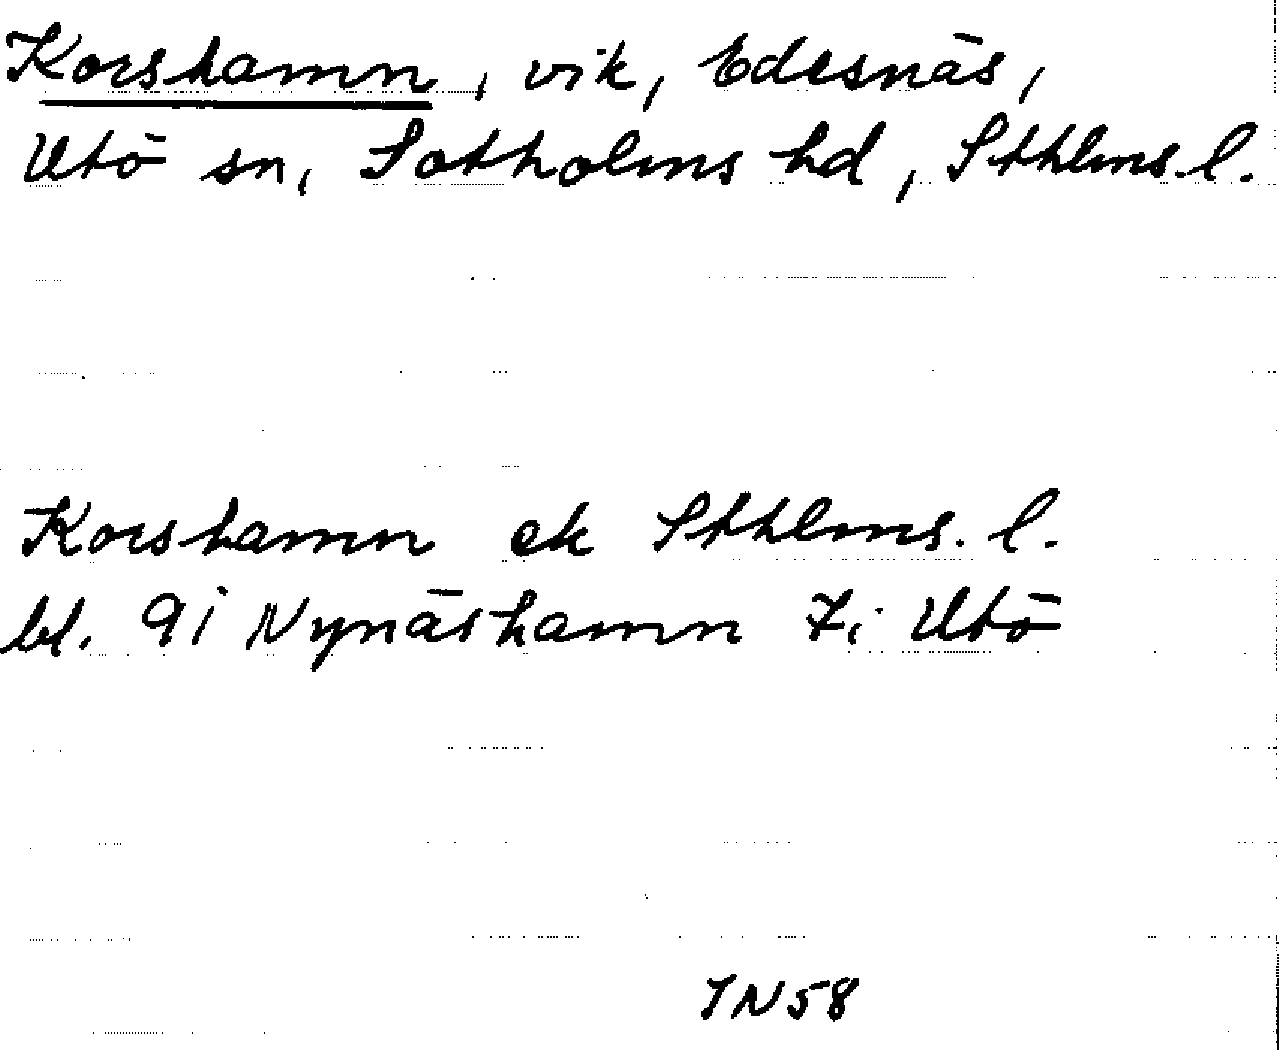 Korshamn, vik, Edesnäs,
Utö sn, Sotholms hd, Sthlms.l.
Korshamn ek Sthlms.l.
bl. 9i Nynäshamn 7i Utö
IN58